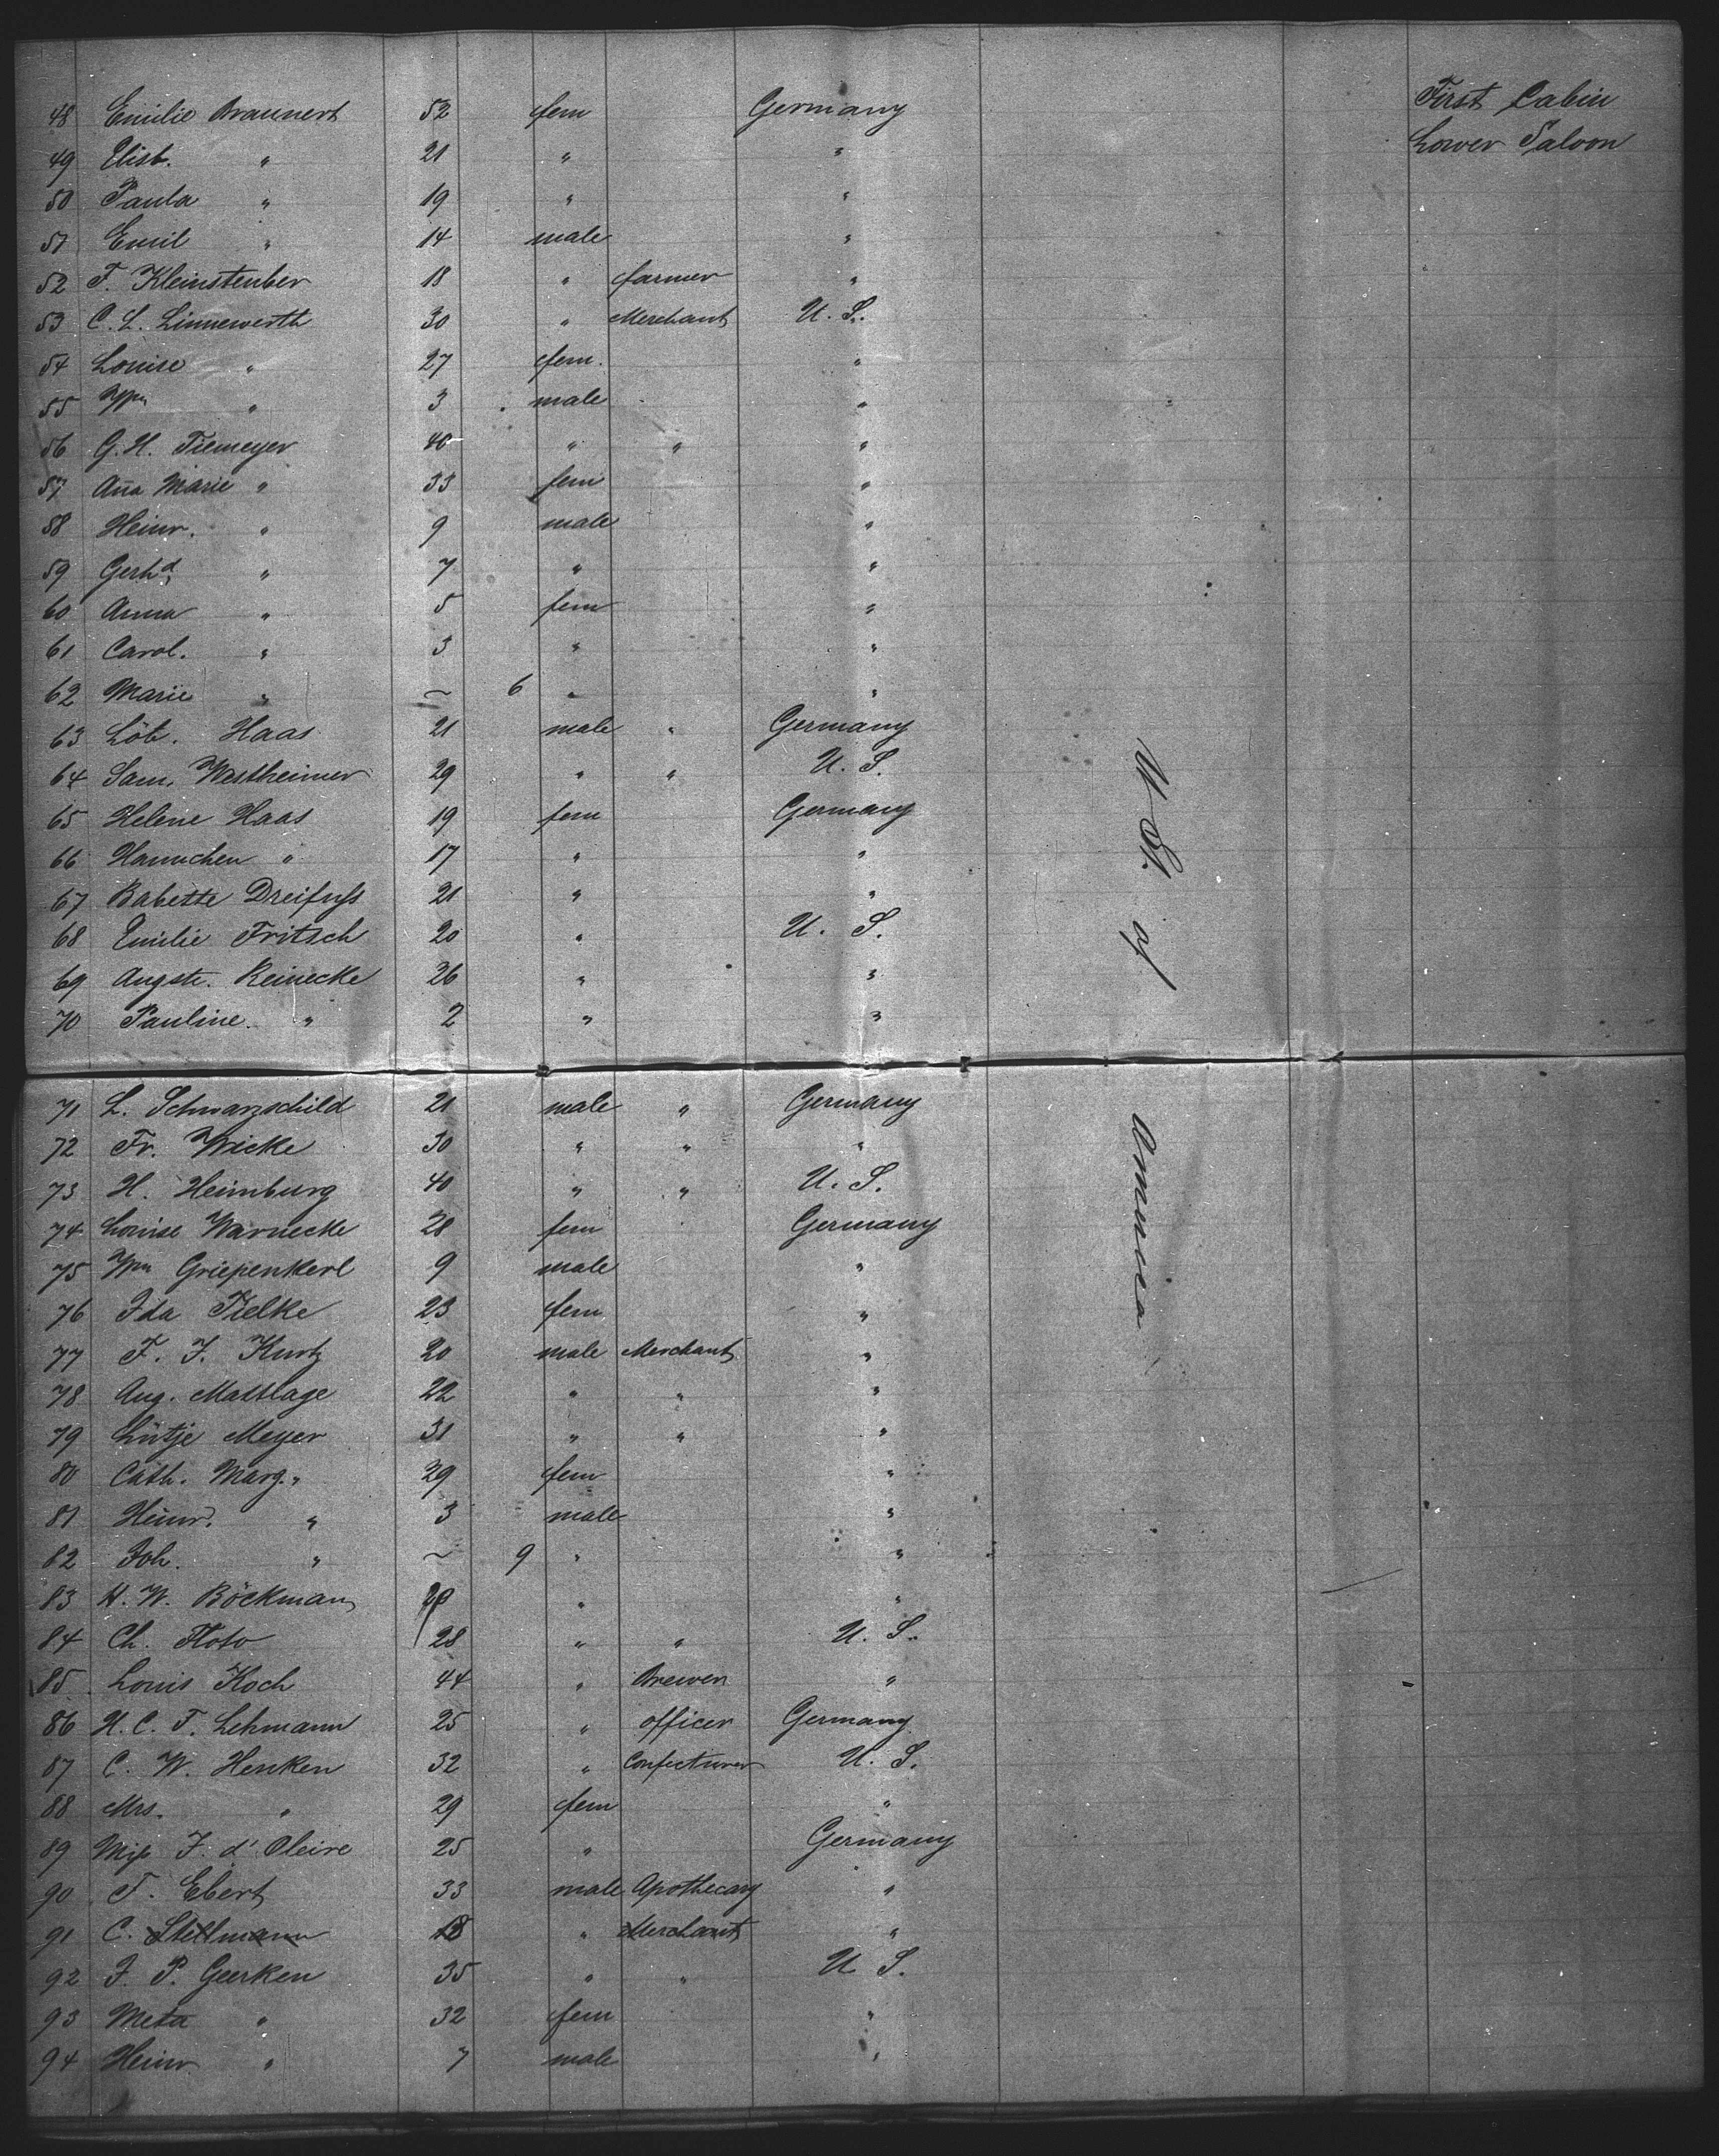 48 Emilie Braunert 52 fem Germany First Cabin
49 Elisb. " 21 " " Lower Saloon
50 Paula " 19 " "
51 Emil " 14 male "
52 F. Kleinsteuber 18 " farmer "
53 C. L. Linnewerth 30 " Merchant U. S.
54 Louise " 27 fem. "
55 Wm " 3 male "
56 G. H. Tiemeyer 40 " " "
57 Ana Marie " 33 fem "
58 Heinr. " 9 male "
59 Gerhd " 7 " "
60 Anna " 5 fem "
61 Carol. " 3 " "
62 Marie " ~ 6 " "
63 Löb. Haas 21 male " Germany
64 Sam. Westheimer 29 " " U. S.
65 Helene Haas 19 fem Germany
66 Hannchen " 17 " "
67 Babette Dreifuss 21 " "
68 Emilie Fritsch 20 " U. S.
69 Augste. Reinecke 26 " "
70 Pauline " 2 " "
U. St. of America
71 L. Schwarzschild 21 male " Germany
72 Fr. Wicke 30 " " "
73 H. Heimburg 40 " " U. S.
74 Louise Warnecke 28 fem Germany
75 Wm Griepenkerl 9 male "
76 Ida Tielke 23 fem "
77 F. J. Kurtz 20 male Merchant "
78 Aug. Mattlage 22 " " "
79 Lütje Meyer 31 " " "
80 Cath. Marg. " 29 fem "
81 Heinr. " 3 male "
82 Joh. " ~ 9 " "
83 H. W. Böckmann " "
84 Ch. Floto 28 " " U. S.
85 Louis Koch 44 " Brewer "
86 H. C. F. Lehmann 25 " officer Germany
87 C. W. Henken 32 " Confecturer U. S.
88 Mrs. " 29 fem "
89 Miss F. d' Oleire 25 " Germany
90 F. Ebert 33 male Apothecary "
91 C. Stellmann 18 " Merchant "
92 J. P. Geerken 35 " " U S.
93 Meta " 32 fem "
94 Heinr " 7 male "